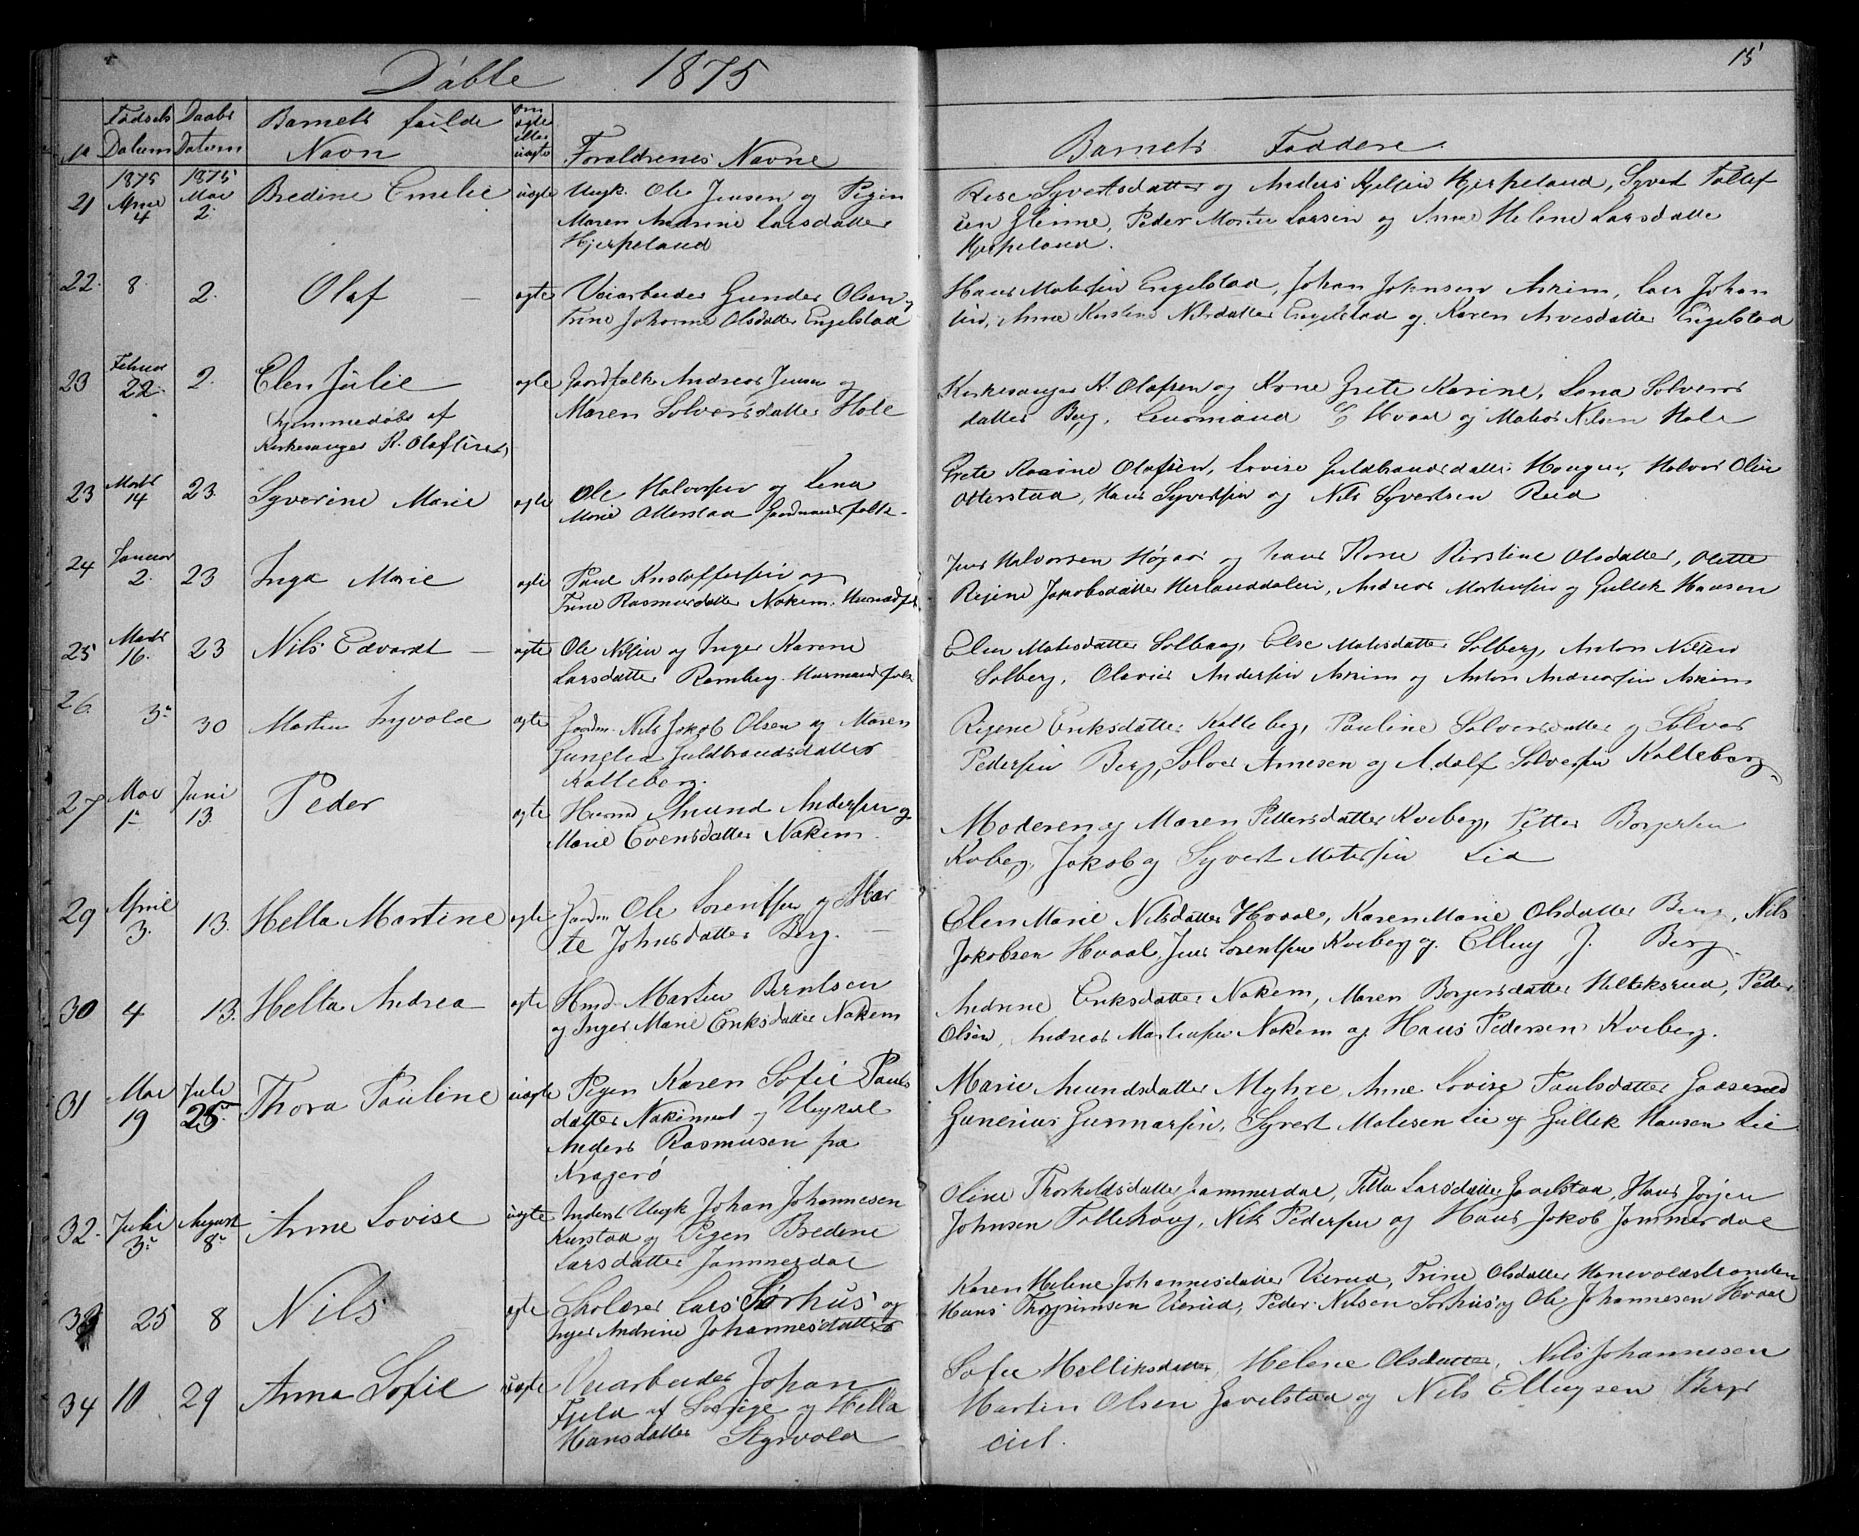 Døbte 1875
15
No
Fødsels Datum
Daabs Datum
Barnets fulde Navn
om ægte eller uægte
Forældrenes Navne
Barnets Faddere
21
1875 4
1875 Mai 2
Bredine Emelie
uægte
Ungk. Ole Jensen og Pigen
Maren Andrine Larsdatter
Hjerpeland
Syvertsdatter og Anders Kjelsen Hjerpeland, Syvert Tollef
sen Glenne, Peder Larsen og Anne Helene Larsdatter
Hjerpeland.
22.
8.
2.
Olaf
ægte
Veiarbeider Gunder Olsen og
Trine Johanne Olsdatter Engelstad
Hans Engelstad, Johan Johnsen Askim, Lars Johan
sen, Anne Kirstine Nilsdatter Engelstad og Karen Engelstad
23
Februar 22.
2.
Elen Julie
hjemmedøbt af
Kirkesanger K. Olafsen
ægte
Gaardfolk Andreas Jensen og
Maren Solversdatter Hole
Kirkesanger K. Olafsen og Kone Grete Karine, Lena Solvers
datter Berg, Hvaal og Nilsen Hole
23
Marts 14
23.
Syverine Marie
ægte
Ole Halvorsen og Lena
Marie Otterstad Gaardmandsfolk
Grete Karine Olafsen, Lovise Guldbrandsdatter Haugen, Halvor Olsen
Otterstad, Hans Syvertsen og Nils Syvertsen Rud
24
Januar 2.
23
Inga Marie
ægte
Paul Kristoffersen og
Trine Rasmusdatter Nakim
Jens Halvorsen og hans Kone Kirstine Olsdatter, Olette
Regine Jakobsdatter, Andreas Martinsen og Gullik Hansen
25
Marts 16.
23
Nils Edvardt
ægte
Ole Nilsen og Inger Karine
Larsdatter Ramberg
Elen Matisdatter Solberg, Else Matisdatter Solberg, Anton Nilsen
Solberg, Andersen Askim og Anton Andreassen Askim
26.
3.
30
Martin
ægte
Gaardm. Nils Jakob Olsen og Maren
Guldbrandsdatter
Kalleberg.
Regine Eriksdatter Kalleberg, Pauline Solversdatter og Solver
Pedersen Berg, Solver Arnesen og Adolf Solversen Kalleberg
27
Mai 1.
Juni 13.
Peder
ægte
Husmd Amund Andersen og
Marie Evensdatter Nakim.
Moderen og Maren Pettersdatter Kveberg, Petter Borgersen
Kveberg, Jakob og Syvert Matisen Lia
29
April 3.
13.
Hella Martine
ægte
Gaardm Ole Lorentsen og Mar
te Johnsdatter Berg.
Elen Marie Nilsdatter Hvaal, Karen Marie Olsdatter Berg, Nils
Jakobsen Hvaal, Jens Lorentsen Kveberg og Elling J. Berg.
30
4
13.
Hella Andrea
ægte
Hmd. Martin Berntsen
og Inger Marie Eriksdatter Nakim
Andrine Eriksdatter Nakim, Maren Borgersdatter Helliksrud, Peder
Olsen, Andreas Martinsen Nakim og Hans Pedersen Kveberg.
31
Mai 19
Juli 25.
Thora Pauline
uægte
Pigen Karen Sofie Pauls
datter og Ungkarl
Anders Rasmusen fra
Kragerø
Marie Amundsdatter Myhre, Anne Lovise Paulsdatter Gaaserud
Gunerius Gunnarsen, Syvert Matisen Lie og Gullik Hansen Lie
32.
Julie 3.
August 8.
Anne Lovise
uægte
Inderst Ungk Johan Johannesen
og Pigen Bredine
Larsdatter Jammerdal
Oline Thorkildsdatter Jammerdal, Larsdatter Gavelstad, Hans Jørgen
Johnsen Tollehoug, Nils Pedersen og Hans Jakob Jammerdal
33
25
8
Nils
ægte
Skolærer Lars Sørhus og
Inger Andrine Johannesdatter
Karen Helene Johannesdatter Vierud, Trine Olsdatter Hanevoldstranden
Hans Thorgrimsen Vierud, Peder Nilsen Sørhus og Ole Johannesen Hvaal
34
10
29
Anna Sofie
uægte
Veiarbeider Johan
Fjeld af Sverige og Hella
Hansdatter Styrvold
Sofie Helliksdatter, Helene Olsdatter, Nils Johannesen
Martin Olsen Gavelstad og Nils Ellingsen Bergs
eiet.